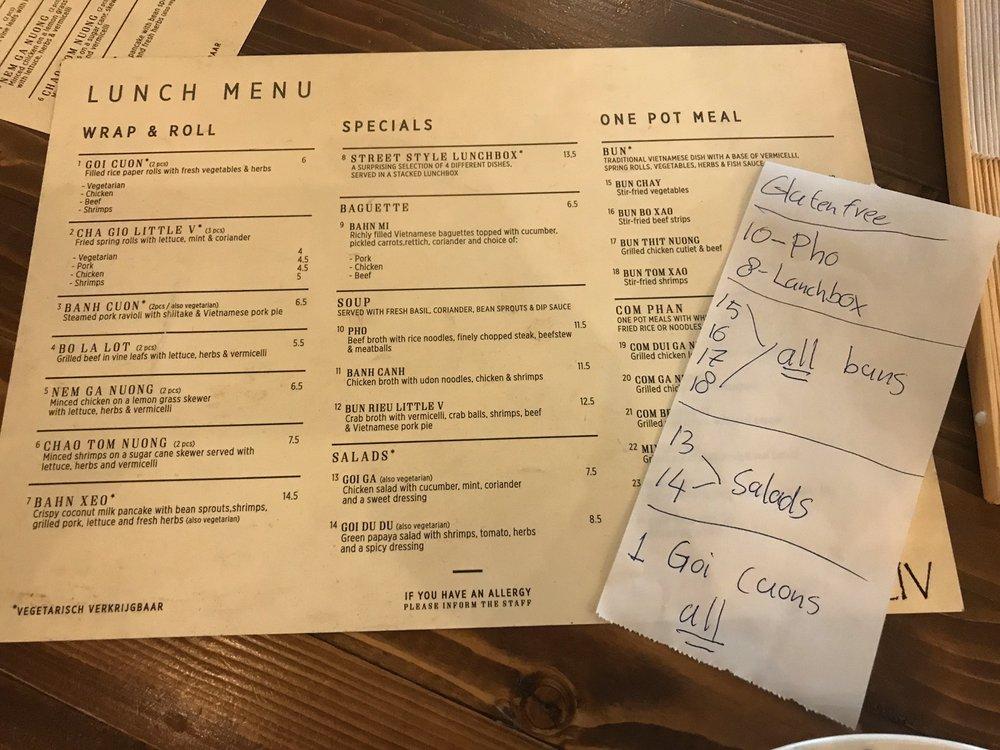 LUNCH MENU
WRAP & ROLL
1 GOI CUON* (2 pcs) 6
Filled rice paper rolls with fresh vegetables & herbs
- Vegetarian
- Chicken
- Beef
- Shrimps
2 CHA GIO LITTLE V* (3 pcs)
Fried spring rolls with lettuce, mint & coriander
- Vegetarian 4
- Pork 4.5
- Chicken 4.5
- Shrimps 5
3 BANH CUON* (2pcs / also vegetarian) 6.5
Steamed pork ravioli with shiitake & Vietnamese pork pie
4 BO LA LOT (2 pcs) 5.5
Grilled beef in vine leafs with lettuce, herbs & vermicelli
5 NEM GA NUONG (2 pcs) 6.5
Minced chicken on a lemon grass skewer
with lettuce, herbs & vermicelli
6 CHAO TOM NUONG (2 pcs) 7.5
Minced shrimps on a sugar cane skewer served with
lettuce, herbs and vermicelli
7 BAHN XEO* 14.5
Crispy coconut milk pancake with bean sprouts,shrimps,
grilled pork, lettuce and fresh herbs (also vegetarian)
*VEGETARISCH VERKRIJGBAAR
SPECIALS
8 STREET STYLE LUNCHBOX* 13,5
A SURPRISING SELECTION OF 4 DIFFERENT DISHES,
SERVED IN A STACKED LUNCHBOX
BAGUETTE 6.5
9 BAHN MI
Richly filled Vietnamese baguettes topped with cucumber,
pickled carrots,rettich, coriander and choice of:
- Pork
- Chicken
- Beef
SOUP
SERVED WITH FRESH BASIL, CORIANDER, BEAN SPROUTS & DIP SAUCE
10 PHO 11.5
Beef broth with rice noodles, finely chopped steak, beefstew
& meatballs
11 BANH CANH 11.5
Chicken broth with udon noodles, chicken & shrimps
12 BUN RIEU LITTLE V 12.5
Crab broth with vermicelli, crab balls, shrimps, beef
& Vietnamese pork pie
SALADS*
13 GOI GA (also vegetarian) 7.5
Chicken salad with cucumber, mint, coriander
and a sweet dressing
14 GOI DU DU (also vegetarian) 8.5
Green papaya salad with shrimps, tomato, herbs
and a spicy dressing
IF YOU HAVE AN ALLERGY
PLEASE INFORM THE STAFF
ONE POT MEAL
BUN*
TRADITIONAL VIETNAMESE DISH WITH A BASE OF VERMICELLI,
SPRING ROLLS, VEGETABLES, HERBS & FISH SAUCE
15 BUN CHAY
Stir-fried vegetables
16 BUN BO XAO
Stir-fried beef strips
17 BUN THIT NUONG
Grilled chicken cutlet & beef
18 BUN TOM XAO
Stir-fried shrimps
COM PHAN
ONE POT MEALS WITH
FRIED RICE OR NOODLES
19 COM DUI GA
Grilled chicken
20 COM GA
Grilled
21 COM
Grilled
22
23
Glutenfree
10-Pho
8-Lunchbox
15
16
17
18
all buns
13
14
Salads
1 Goi Cuons
all
NEM GA NUONG (2 pcs)
Minced chicken on a lemon grass
with lettuce, herbs & vermicelli
6
pancake with bean
and fresh herbs